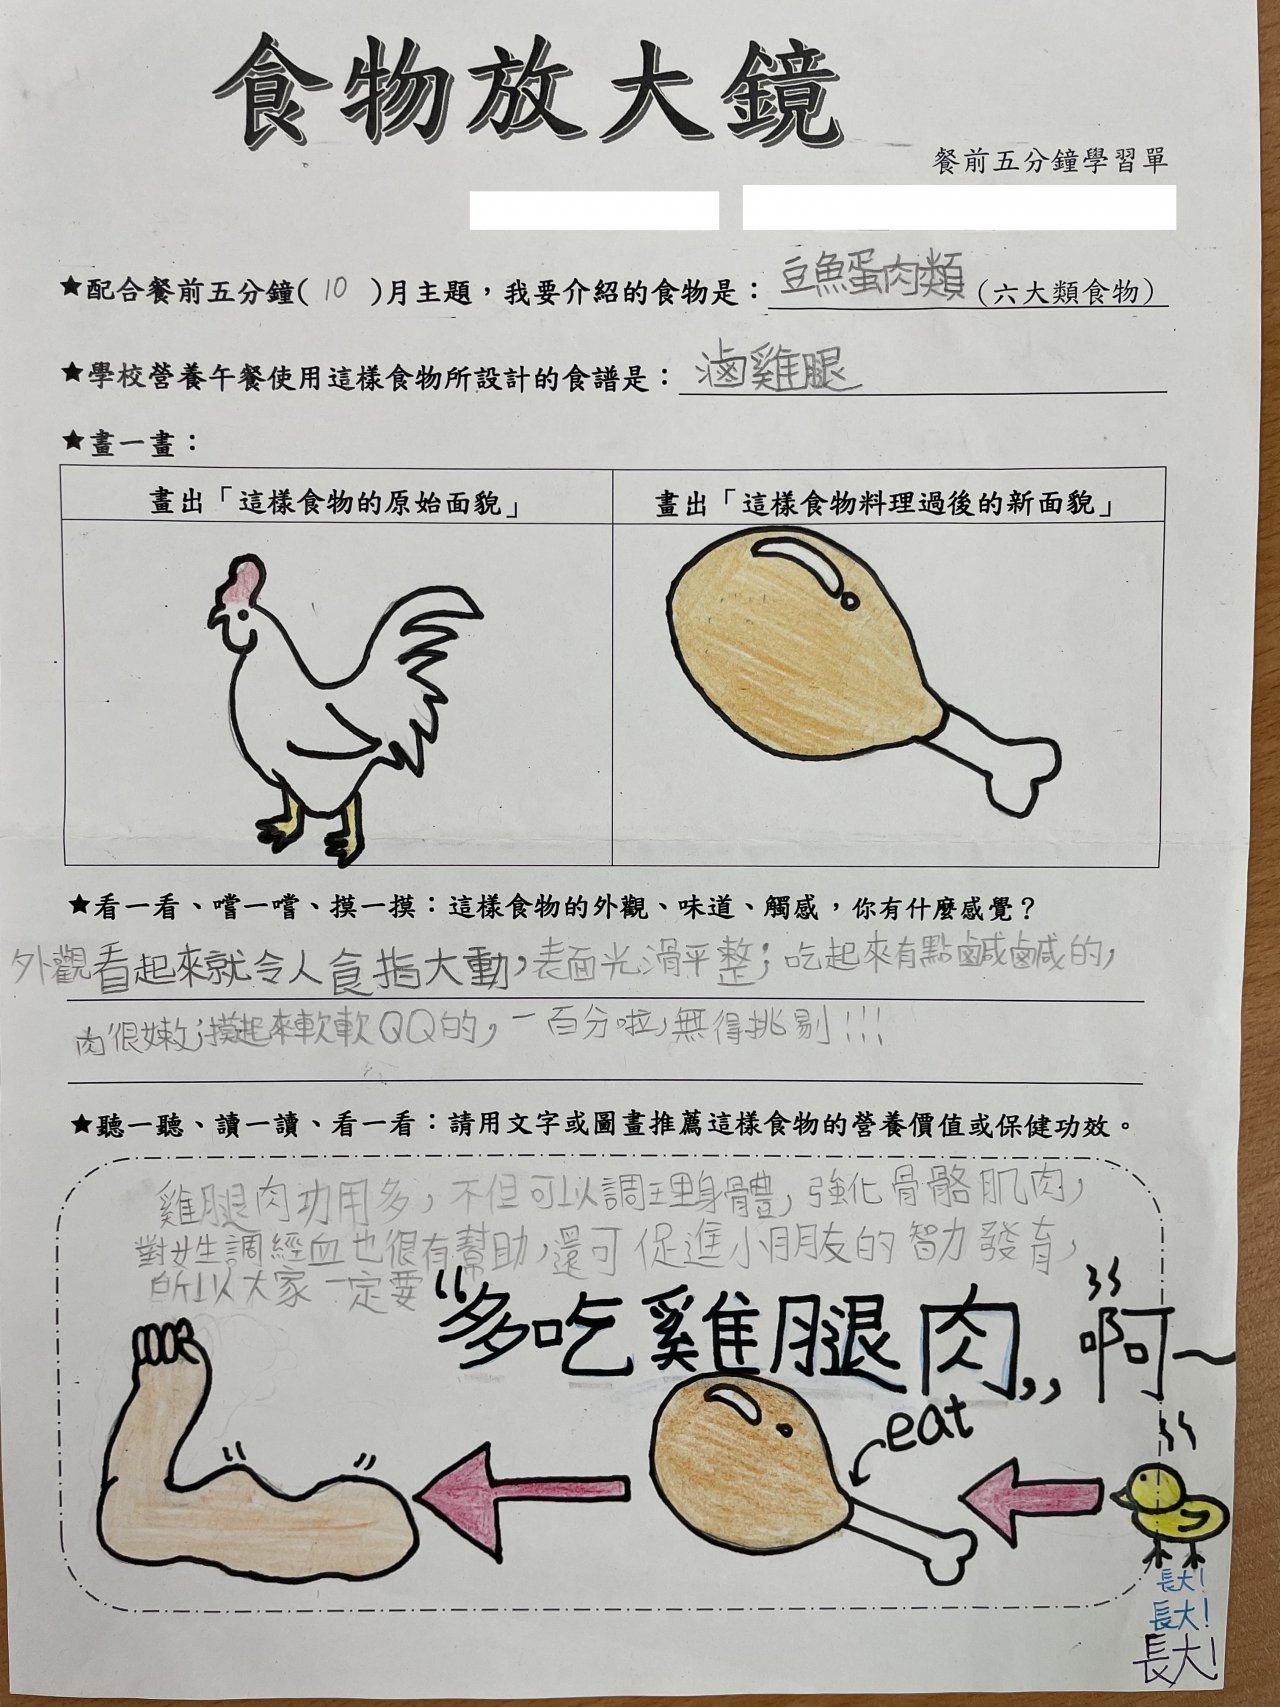 食物放大鏡
餐前五分鐘學習單
★配合餐前五分鐘( 10 )月主題，我要介紹的食物是：豆魚蛋肉類(六大類食物)
★學校營養午餐使用這樣食物所設計的食譜是：滷雞腿
★畫一畫：
畫出「這樣食物的原始面貌」
畫出「這樣食物料理過後的新面貌」
★看一看、嚐一嚐、摸一摸：這樣食物的外觀、味道、觸感，你有什麼感覺？
外觀看起來就令人食指大動，表面光滑平整；吃起來有點鹹鹹的，
肉很嫩；摸起來軟軟QQ的，一百分啦，無得挑剔!!!
★聽一聽、讀一讀、看一看：請用文字或圖畫推薦這樣食物的營養價值或保健功效。
雞腿肉功用多，不但可以調理身體，強化骨骼肌肉，
對女生調經血也很有幫助，還可促進小朋友的智力發育，
所以大家一定要“多吃雞腿肉”啊~
eat
長大!
長大!
長大!